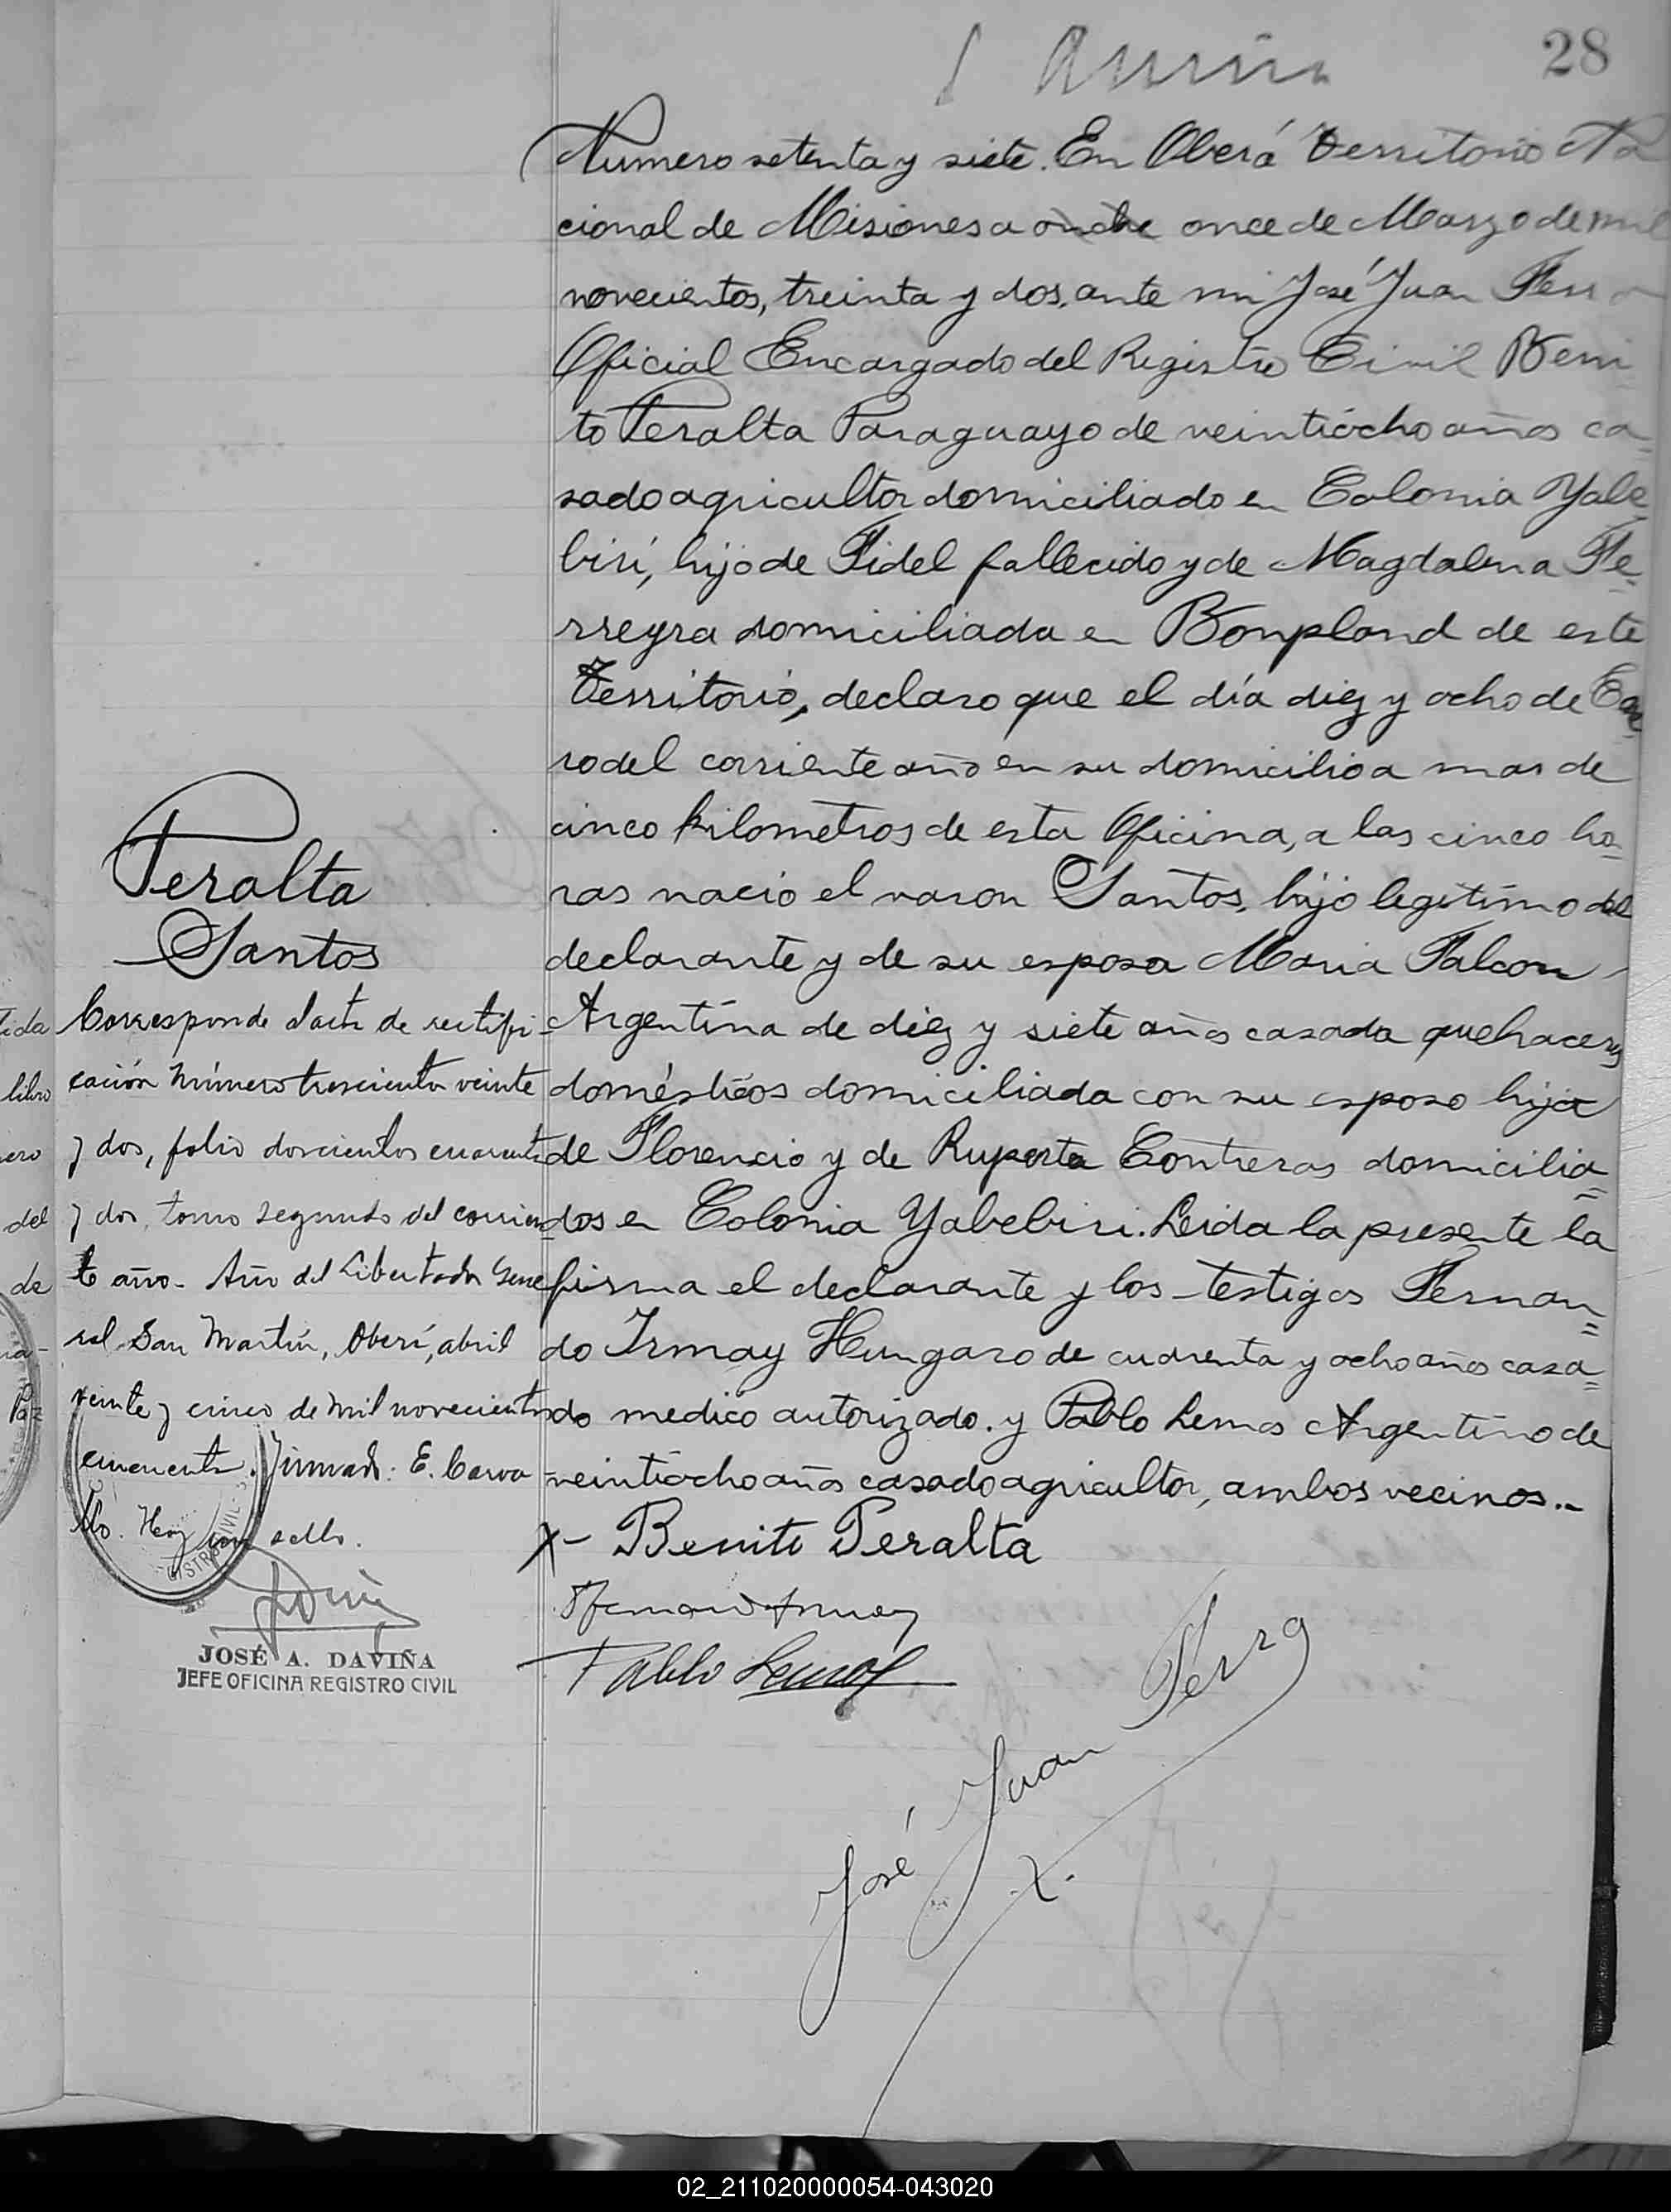 28
Numero setenta y siete. En Oberá Territorio Na
cional de Misiones a once de Marzo de mil
novecientos, treinta y dos, ante mi José Juan Ferra
Oficial Encargado del Registro Civil Beni
to Peralta Paraguayo de veintiócho años ca
sado agricultor domiciliado en Colonia Yabe
birí, hijo de Fidel fallecido y de Magdalena Fe
rreyra domiciliada en Bonpland de este
Territorio, declaro que el día diez y ocho de Ene
ro del corriente año en su domicilio a mas de
cinco kilometros de esta Oficina, a las cinco ho
ras nacio el varon Santos, hijo legitimo del
declarante y de su esposa Maria Falcon
Argentina de diez y siete años casada quehaceres
domésticos domiciliada con su esposo hija
de Florencio y de Ruperta Contreras domicilia
dos en Colonia Yabebiri. Leida la presente la
firma el declarante y los testigos Fernan
do Irmay Hungaro de cuarenta y ocho años casa
do medico autorizado. y Pablo Lemos Argentino de
veintiocho años casado agricultor, ambos vecinos..
X- Benito Peralta
Pablo Lemos
José Juan Ferra
Peralta
Santos
Corresponde acta de rectifi
cación número trescientos veinte
y dos, folio doscientos cuarenta
y dos, tomo segundo del corrien
te año - Año del Libertador Gene
ral San Martín, Oberá, abril
veinte y cinco de mil novecientos
cincuenta. Firmado: E. Carva
llo. Hay un sello.
JOSÉ A. DAVIÑA
JEFE OFICINA REGISTRO CIVIL
tida
libro
ero
del
de
Paz
02_211020000054-043020